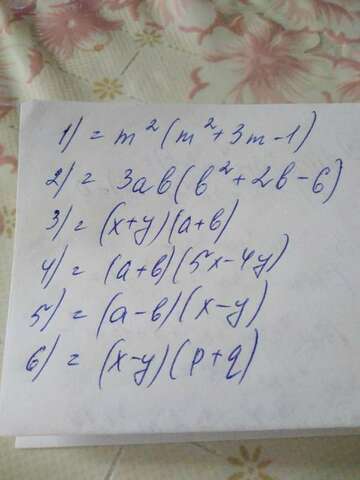 1) = m²(m²+3m-1)
2) = 3ab(b²+2b-6)
3) = (x+y)(a+b)
4) = (a+b)(5x-4y)
5) = (a-b)(x-y)
6) = (x-y)(p+q)